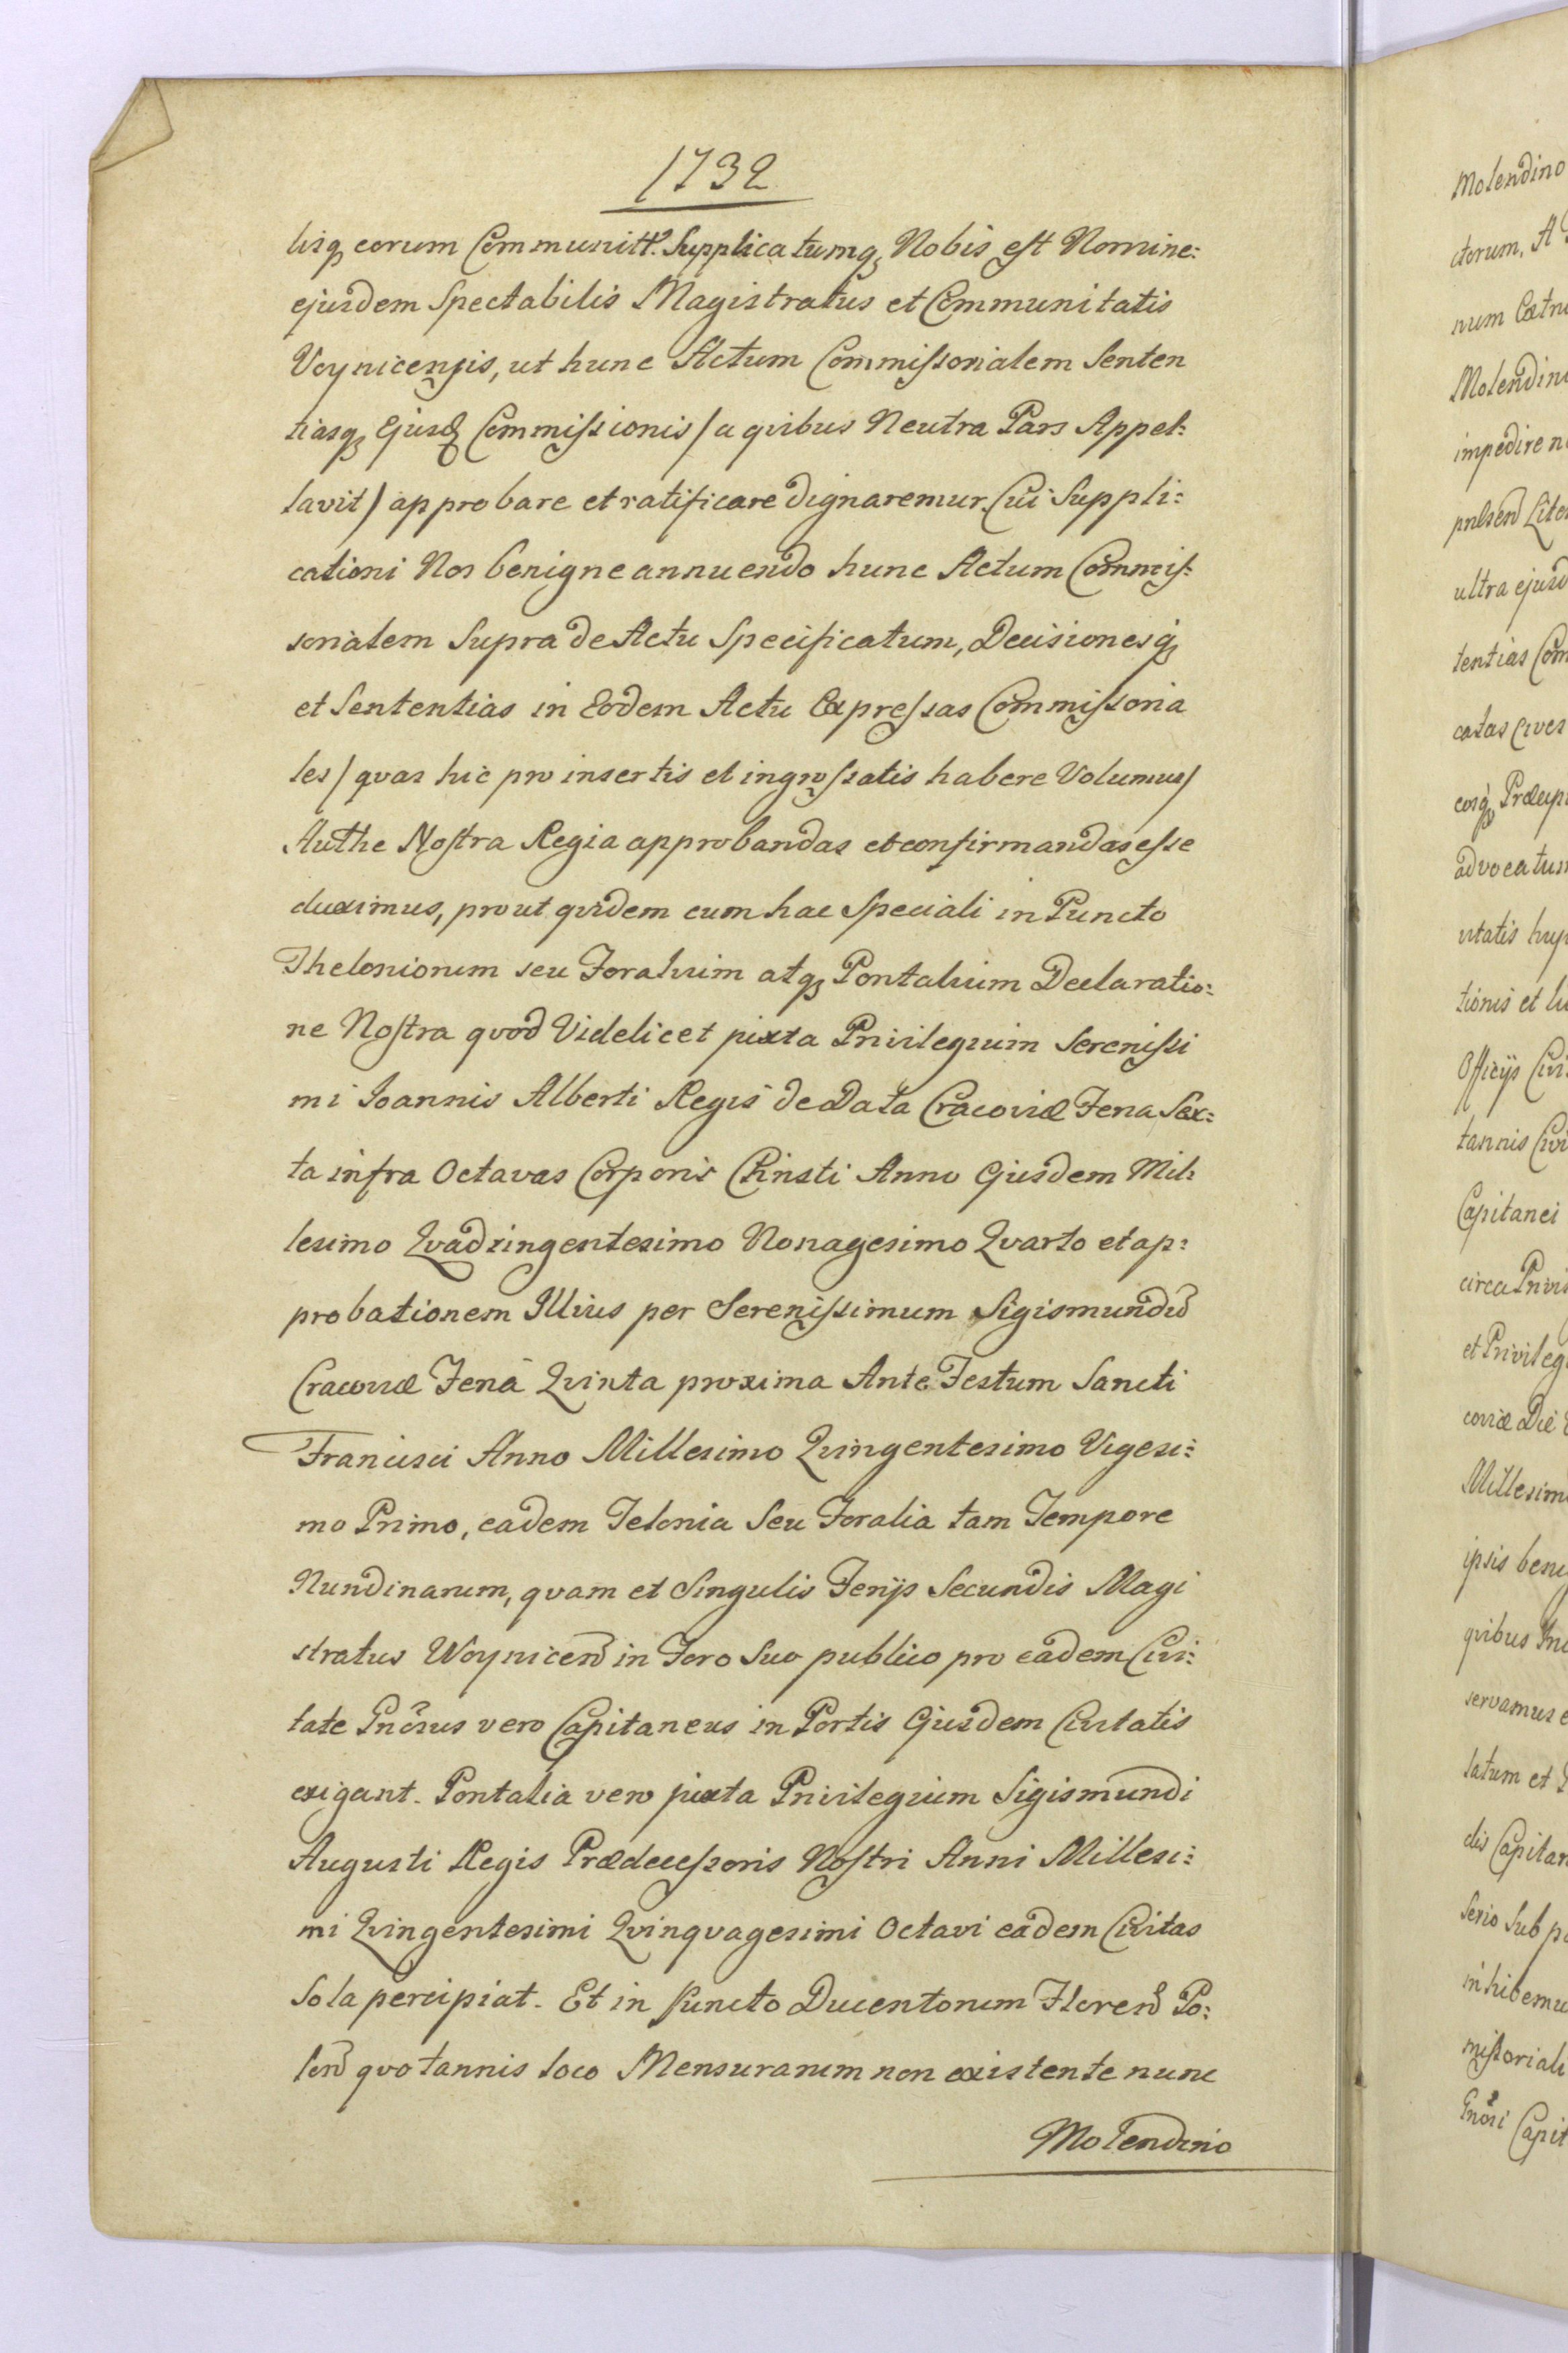 1732
lisq; eorum Communitt. Supplicatumq; Nobis est Nomine:
ejusdem Spectabilis Magistratus et Communitatis
Voynicensis, ut hunc Actum Commissorialem Senten
tiasq; Ejusd Commissionis / a quibus Neutra Pars Appel:
lavit / approbare et ratificare dignaremur. Cui Suppli:
cationi Nos benigne annuendo hunc Actum Commis:
sorialem Supra de Actu Specificatum, Decisionesq;
et Sententias in Eodem Actu Expressas Commissoria
les / quas hic pro insertis et ingrossatis habere Volumus /
Authe Nostra Regia approbandas et confirmandas esse
duximus, prout quidem cum hac Speciali in Puncto
Theloniorum seu Foralium atq; Pontalium Declaratio:
ne Nostra quod Videlicet juxta Privilegium Serenissi
mi Joannis Alberti Regis de Data Cracoviæ Feria Sex:
ta infra Octavas Corporis Christi Anno Ejusdem Mil
lesimo Quadringentesimo Nonagesimo Quarto et ap:
probationem Illius per Serenissimum Sigismundū
Cracoviæ Feria Quinta proxima Ante Festum Sancti
Francisci Anno Millesimo Quingentesimo Vigesi:
mo Primo, eadem Telonia Seu Foralia tam Tempore
Nundinarum, quam et Singulis Ferijs Secundis Magi
stratus Woynicen in Foro Suo publico pro eadem Civi:
tate Gnosus vero Capitaneus in Portis Ejusdem Civitatis
exigant. Pontalia vero juxta Privilegium Sigismundi
Augusti Regis Prædecessoris Nostri Anni Millesi:
mi Quingentesimi Quinquagesimi Octavi eadem Civitas
Sola percipiat. Et in Puncto Ducentorum Floren Po:
lon quotannis loco Mensurarum non existente nunc
Molendino
Molendino
ctorum, A
num
Molendin
impedire n
Lite
ultra ejusd
tentias Com
catas Cives
eosq; Præcip
advocatum
vitatis huj
tionis et li
Officijs Civi
tannis Civi
Capitanei
circa Privi
et Privileg
coviæ Die
Millesim
ipsis beni
quibus
servamus e
latum et
dis Capitan
Serio Sub p
inhibemu
missoriali
Gnosi Capit